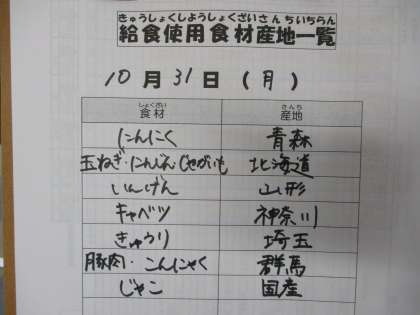 きゅうしょくしようしょくざいさんちいちらん
給食使用食材産地一覧
10月31日(月)
しょくざい さんち
食材 産地
にんにく 青森
玉ねぎ・にんじん・じゃがいも 北海道
いんげん 山形
キャベツ 神奈川
きゅうり 埼玉
豚肉・こんにゃく 群馬
じゃこ 国産